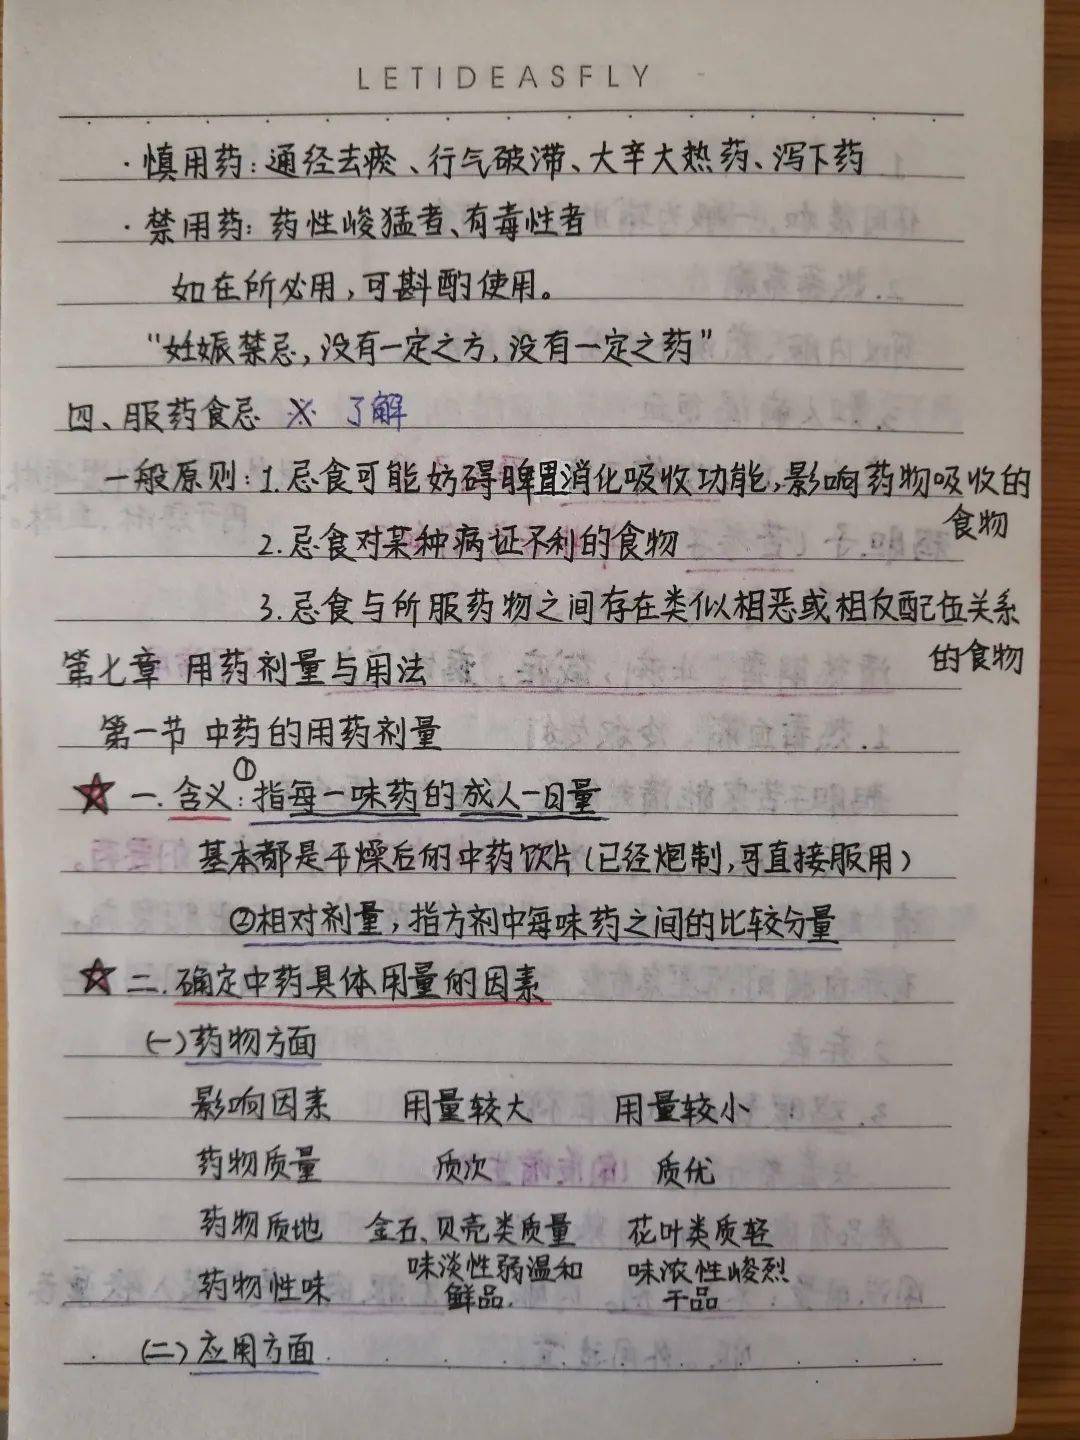 LETIDEASFLY
·慎用药：通经去瘀、行气破滞、大辛大热药、泻下药
·禁用药：药性峻猛者、有毒性者
如在所必用，可斟酌使用。
“妊娠禁忌，没有一定之方，没有一定之药”
四、服药食忌 ※ 了解
一般原则：1.忌食可能妨碍脾胃消化吸收功能，影响药物吸收的
食物
2.忌食对某种病证不利的食物
3.忌食与所服药物之间存在类似相恶或相反配伍关系
的食物
第七章 用药剂量与用法
第一节 中药的用药剂量
一.含义：①指每一味药的成人一日量
基本都是干燥后的中药饮片（已经炮制，可直接服用）
②相对剂量，指方剂中每味药之间的比较分量
二.确定中药具体用量的因素
(一)药物方面
影响因素 用量较大 用量较小
药物质量 质次 质优
药物质地 金石、贝壳类质量 花叶类质轻
药物性味 味淡性弱温和 味浓性峻烈
鲜品. 干品
(二)应用方面